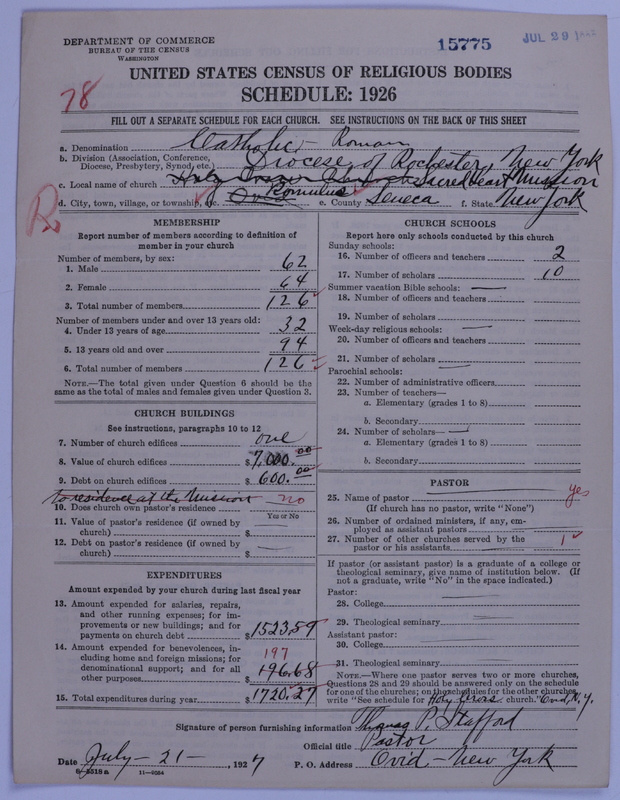 DEPARTMENT OF COMMERCE
BUREAU OF THE CENSUS
WASHINGTON
15775
JUL 29
UNITED STATES CENSUS OF RELIGIOUS BODIES
SCHEDULE: 1926
78
FILL OUT A SEPARATE SCHEDULE FOR EACH CHURCH. SEE INSTRUCTIONS ON THE BACK OF THIS SHEET
a. Denomination Catholic - Roman
b. Division (Association, Conference, Diocese, Presbytery, Synod, etc.) Diocese of Rochester, New York
c. Local name of church Holy Cross Church Sacred Heart Mission
d. City, town, village, or township, etc. Ovid Romulus e. County Seneca f. State New York
MEMBERSHIP
Report number of members according to definition of member in your church
Number of members, by sex:
1. Male 62
2. Female 64
3. Total number of members 126
Number of members under and over 13 years old:
4. Under 13 years of age 32
5. 13 years old and over 94
6. Total number of members 126
NOTE.—The total given under Question 6 should be the same as the total of males and females given under Question 3.
CHURCH BUILDINGS
See instructions, paragraphs 10 to 12
7. Number of church edifices one
8. Value of church edifices $7,000.00
9. Debt on church edifices $600.00
no residence at the Mission
10. Does church own pastor's residence no
Yes or No
11. Value of pastor's residence (if owned by church) $
12. Debt on pastor's residence (if owned by church) $
EXPENDITURES
Amount expended by your church during last fiscal year
13. Amount expended for salaries, repairs, and other running expenses; for improvements or new buildings; and for payments on church debt $1523.59
14. Amount expended for benevolences, including home and foreign missions; for denominational support; and for all other purposes $196.68
197
15. Total expenditures during year $1720.27
CHURCH SCHOOLS
Report here only schools conducted by this church
Sunday schools:
16. Number of officers and teachers 2
17. Number of scholars 10
Summer vacation Bible schools:
18. Number of officers and teachers
19. Number of scholars
Week-day religious schools:
20. Number of officers and teachers
21. Number of scholars
Parochial schools:
22. Number of administrative officers
23. Number of teachers—
a. Elementary (grades 1 to 8)
b. Secondary
24. Number of scholars—
a. Elementary (grades 1 to 8)
b. Secondary
PASTOR
25. Name of pastor yes
(If church has no pastor, write "None")
26. Number of ordained ministers, if any, employed as assistant pastors
27. Number of other churches served by the pastor or his assistants 1
If pastor (or assistant pastor) is a graduate of a college or theological seminary, give name of institution below. (If not a graduate, write "No" in the space indicated.)
Pastor:
28. College
29. Theological seminary
Assistant pastor:
30. College
31. Theological seminary
NOTE.—Where one pastor serves two or more churches, Questions 28 and 29 should be answered only on the schedule for one of the churches; on the schedules for the other churches, write "See schedule for Holy Cross church." Ovid, N.Y.
Signature of person furnishing information Thomas P. Stafford
Official title Pastor
Date July - 21 -, 1927 P. O. Address Ovid - New York
11-9054